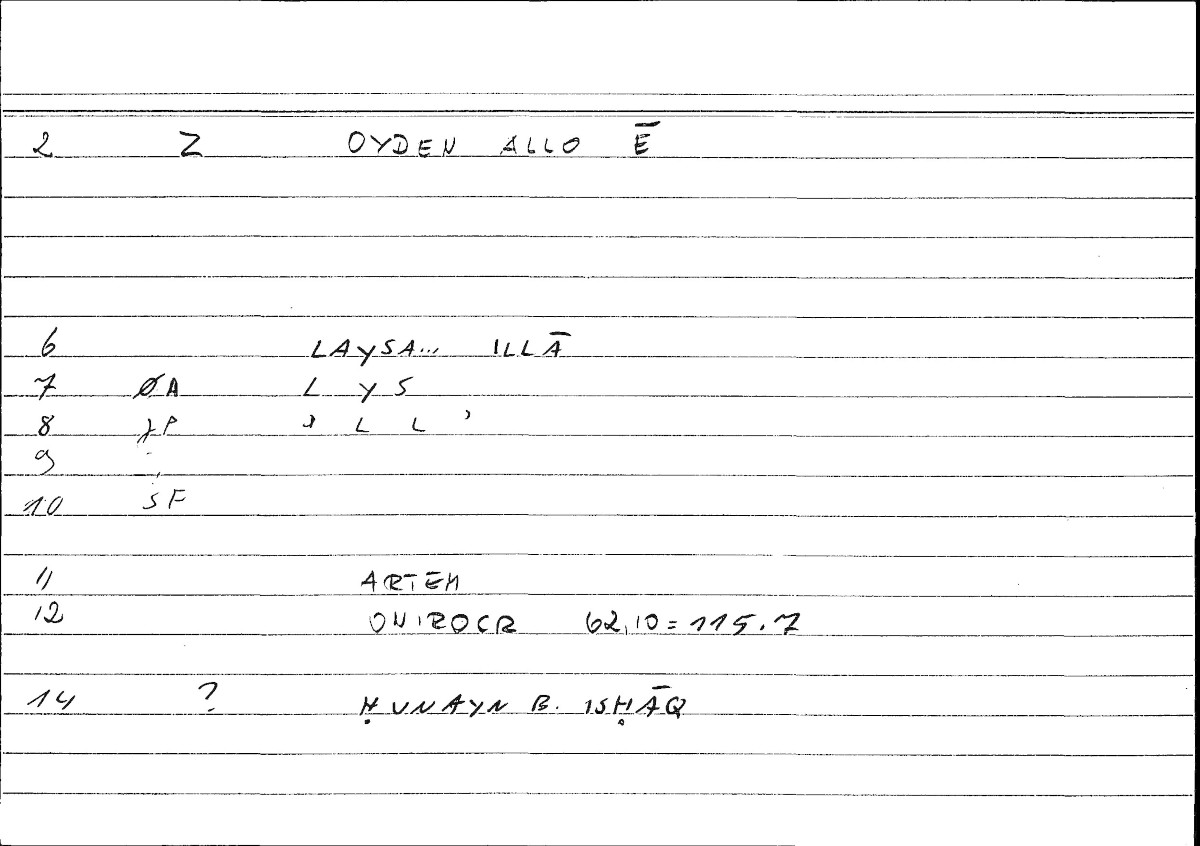 2 Z OYDEN ALLO Ē
6 LAYSA... ILLĀ
7 ØA L Y S
8 P ʾ L L ʾ
9
10 SF
11 ARTEM
12 ONIROCR 62,10 = 115.7
14 ? ḤUNAYN B. ISḤĀQ